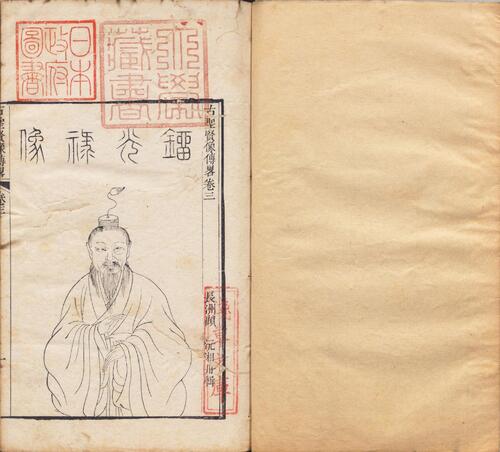 日本
政府
圖書
大學
藏書
古聖賢像傳畧卷三
長洲顧 沅湘舟輯
淺草文庫
鎦光祿像
古聖賢像傳畧 卷三